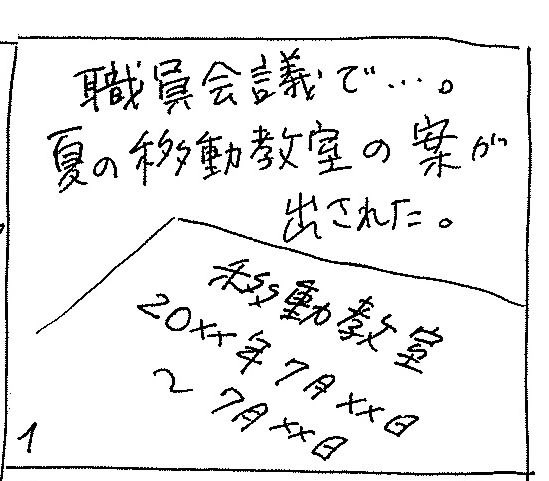 職員会議で…。
夏の移動教室の案が
出された。
移動教室
20xx年7月xx日
~7月xx日
1